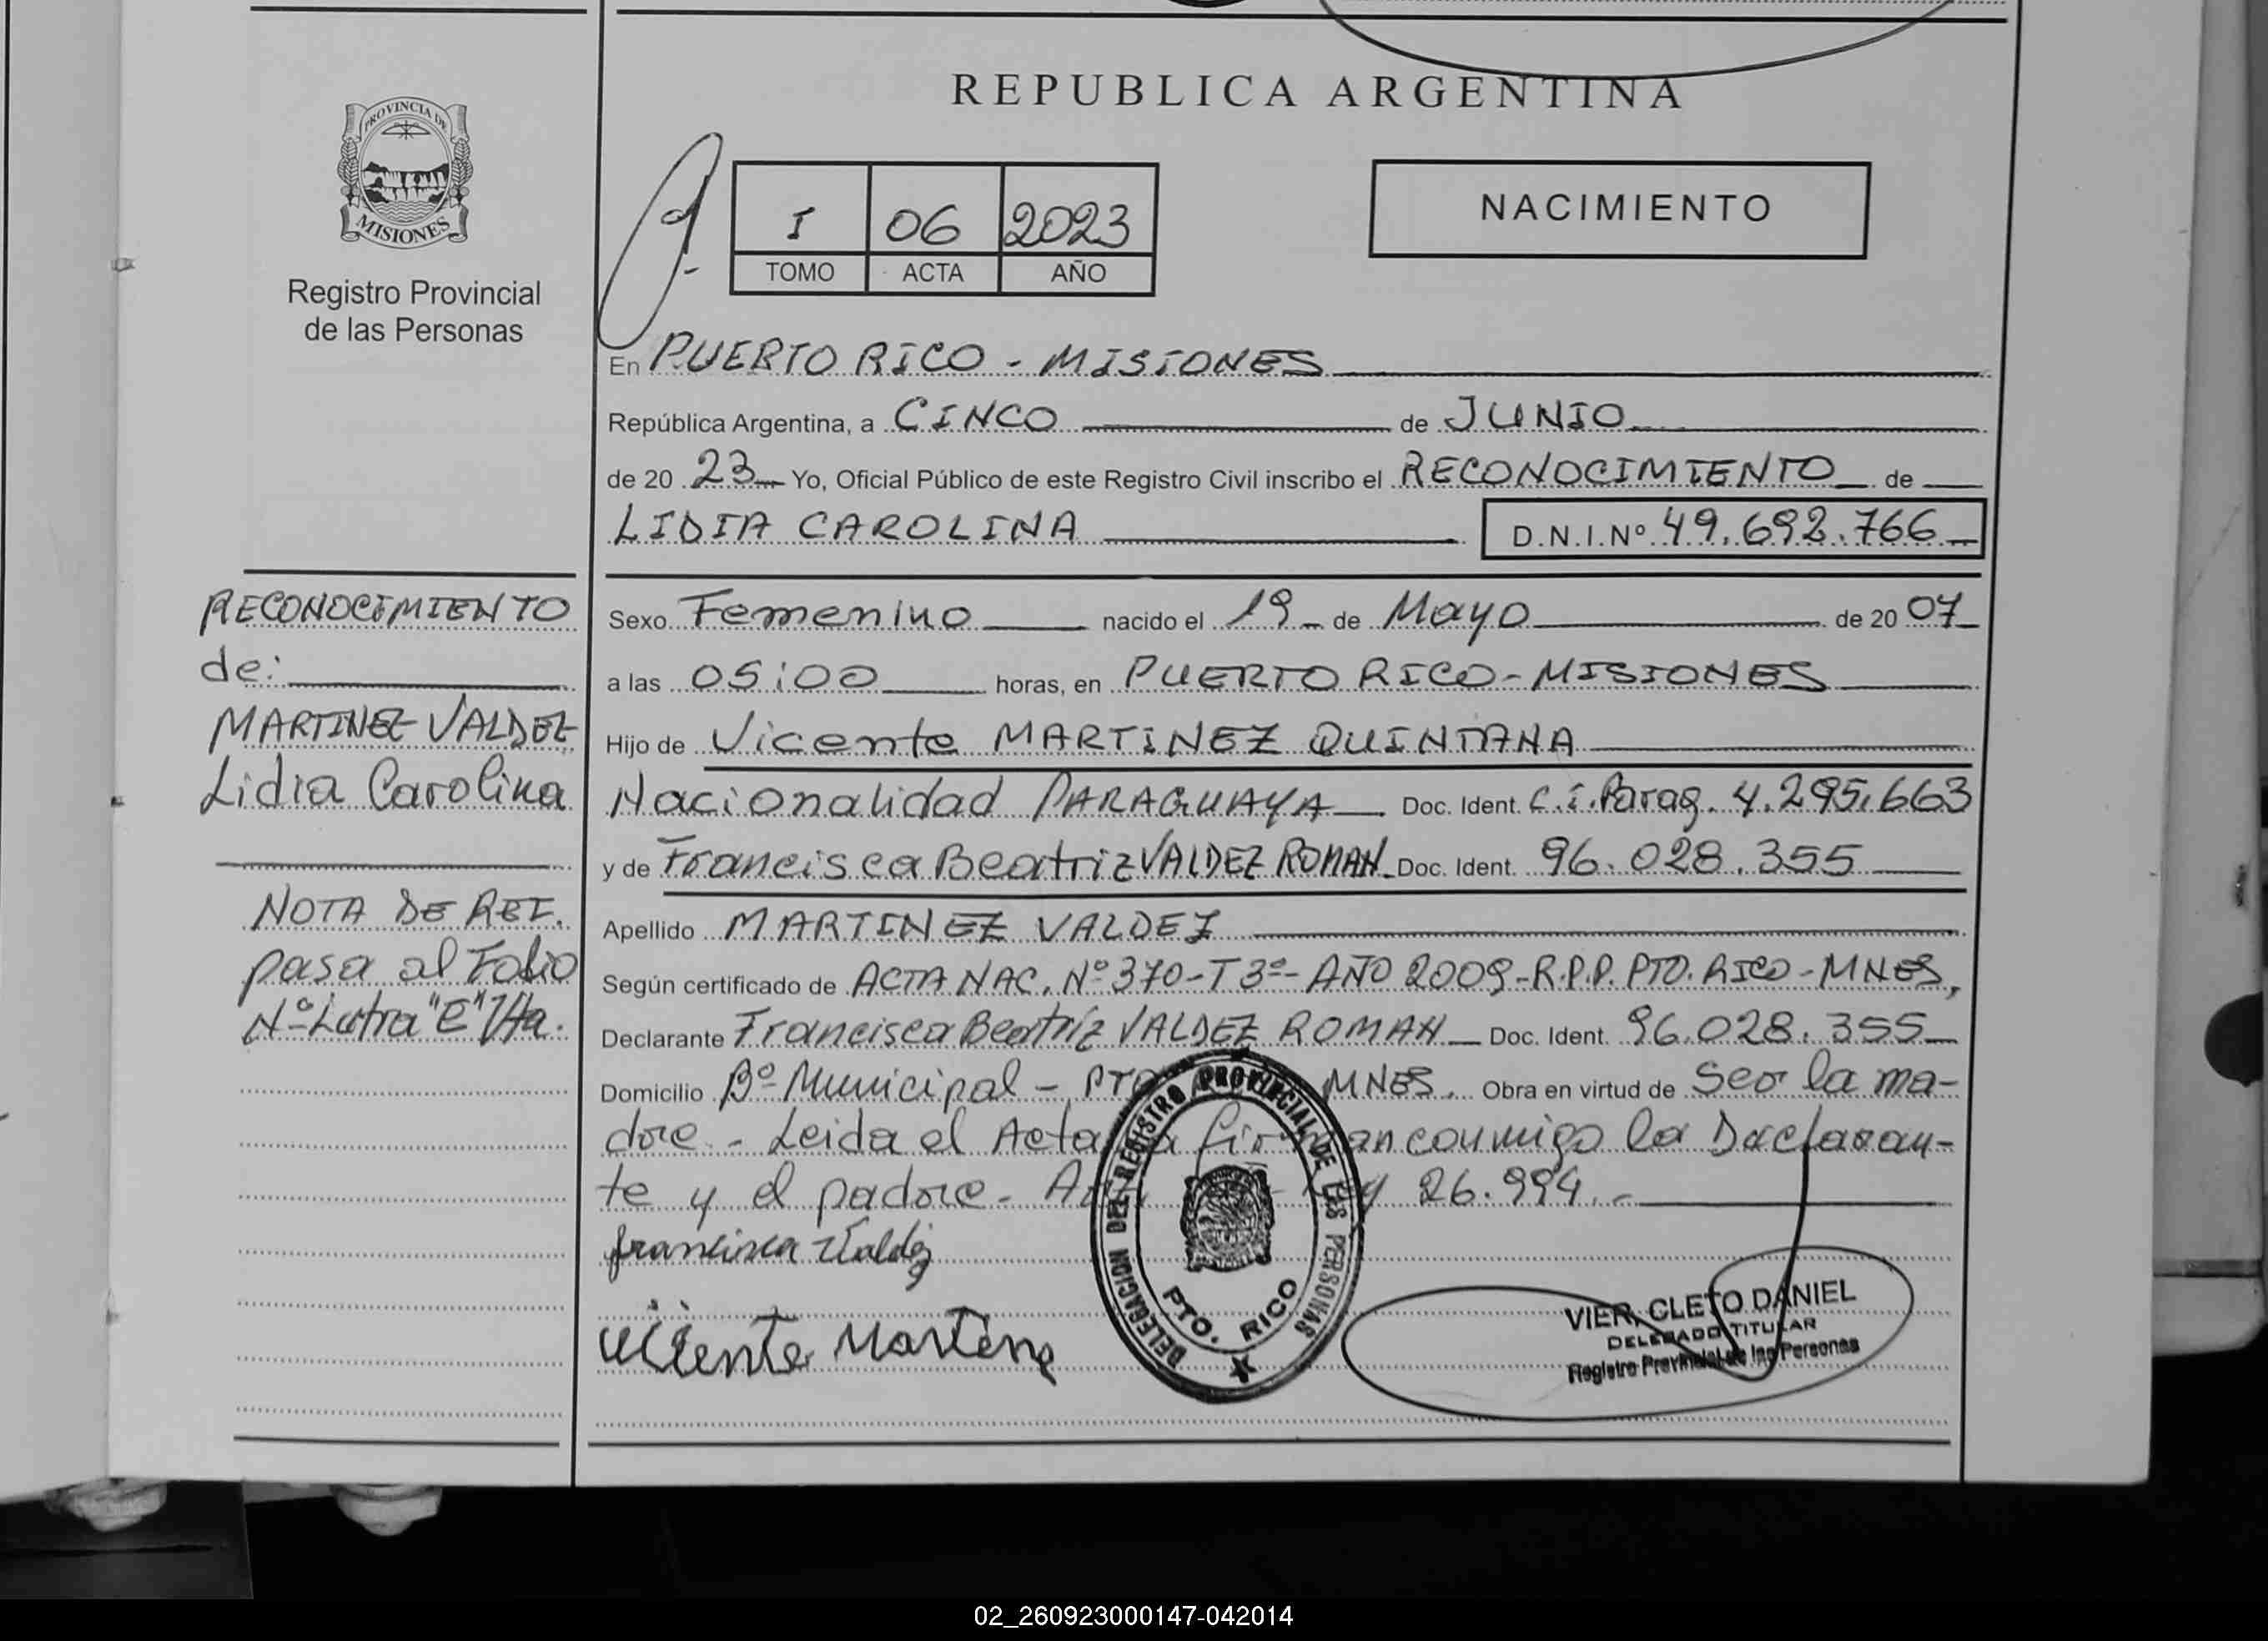 REPUBLICA ARGENTINA
PROVINCIA DE
MISIONES
Registro Provincial
de las Personas
I 06 2023
TOMO ACTA AÑO
NACIMIENTO
En PUERTO RICO - MISIONES
República Argentina, a CINCO de JUNIO
de 20 23 Yo, Oficial Público de este Registro Civil inscribo el RECONOCIMIENTO de
LIDIA CAROLINA D.N.I.Nº 49.692.766
RECONOCIMIENTO
de:
MARTINEZ VALDEZ
Lidia Carolina
NOTA DE REF.
pasa al Folio
Nº Letra "E" Vta.
Sexo Femenino nacido el 19 de Mayo de 20 07
a las 05:00 horas, en PUERTO RICO - MISIONES
Hijo de Vicente MARTINEZ QUINTANA
Nacionalidad PARAGUAYA Doc. Ident. C.I. Parag. 4.295.663
y de Francisca Beatriz VALDEZ ROMAN Doc. Ident. 96.028.355
Apellido MARTINEZ VALDEZ
Según certificado de ACTA NAC. Nº 370 - T 3º - AÑO 2009 - R.P.P. PTO. RICO - MNES,
Declarante Francisca Beatriz VALDEZ ROMAN Doc. Ident. 96.028.355
Domicilio Bº Municipal - PTO MNES. Obra en virtud de Ser la ma-
dre - Leida el Acta la firman conmigo la Declaran-
te y el padre - 26.994.-
francisca Valdez
Vicente Martinez
DELEGACION DEL REGISTRO PROVINCIAL DE LAS PERSONAS
PTO. RICO
VIER, CLETO DANIEL
DELEGADO TITULAR
Registro Provincial de las Personas
02_260923000147-042014